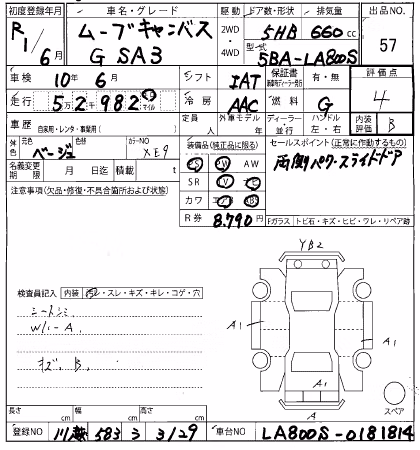 初度登録年月 車名・グレード 駆動 ドア数・形状 排気量 出品No.
R1/6月 ムーブキャンバス G SA3 2WD・4WD 5HB 660cc 57
型式 5BA-LA800S
車検 10年6月 シフト IAT 保証書 有・無 評価点
走行 5万2千982 km マイル 冷房 AAC 燃料 G 4
車歴 自家用・レンタ・事業用( ) 定員 人 外車モデル 年 ディーラー・並行 ハンドル 左・右 内装評価 B
体色 元色 ベージュ 色替 カラーNO XE9 装備品(純正品に限る) セールスポイント(正常に作動するもの)
PS PW AW 両側パワースライドドア
名義変更期限 月 日迄 積載 t SR TV ナビ
注意事項(欠品・修復・不具合箇所および状態) カワ エアB ABS
R券 8,790円 Fガラス トビ石・キズ・ヒビ・ワレ・リペア跡
YB2
検査員記入 内装 ヨレ・スレ・キズ・キレ・コゲ・穴
シートシミ
W/ハ-A
キズ、B
A1
A1
A1
A
スペア
長さ cm 幅 cm 高さ cm
登録NO 583 3129 車台NO LA800S-0181814